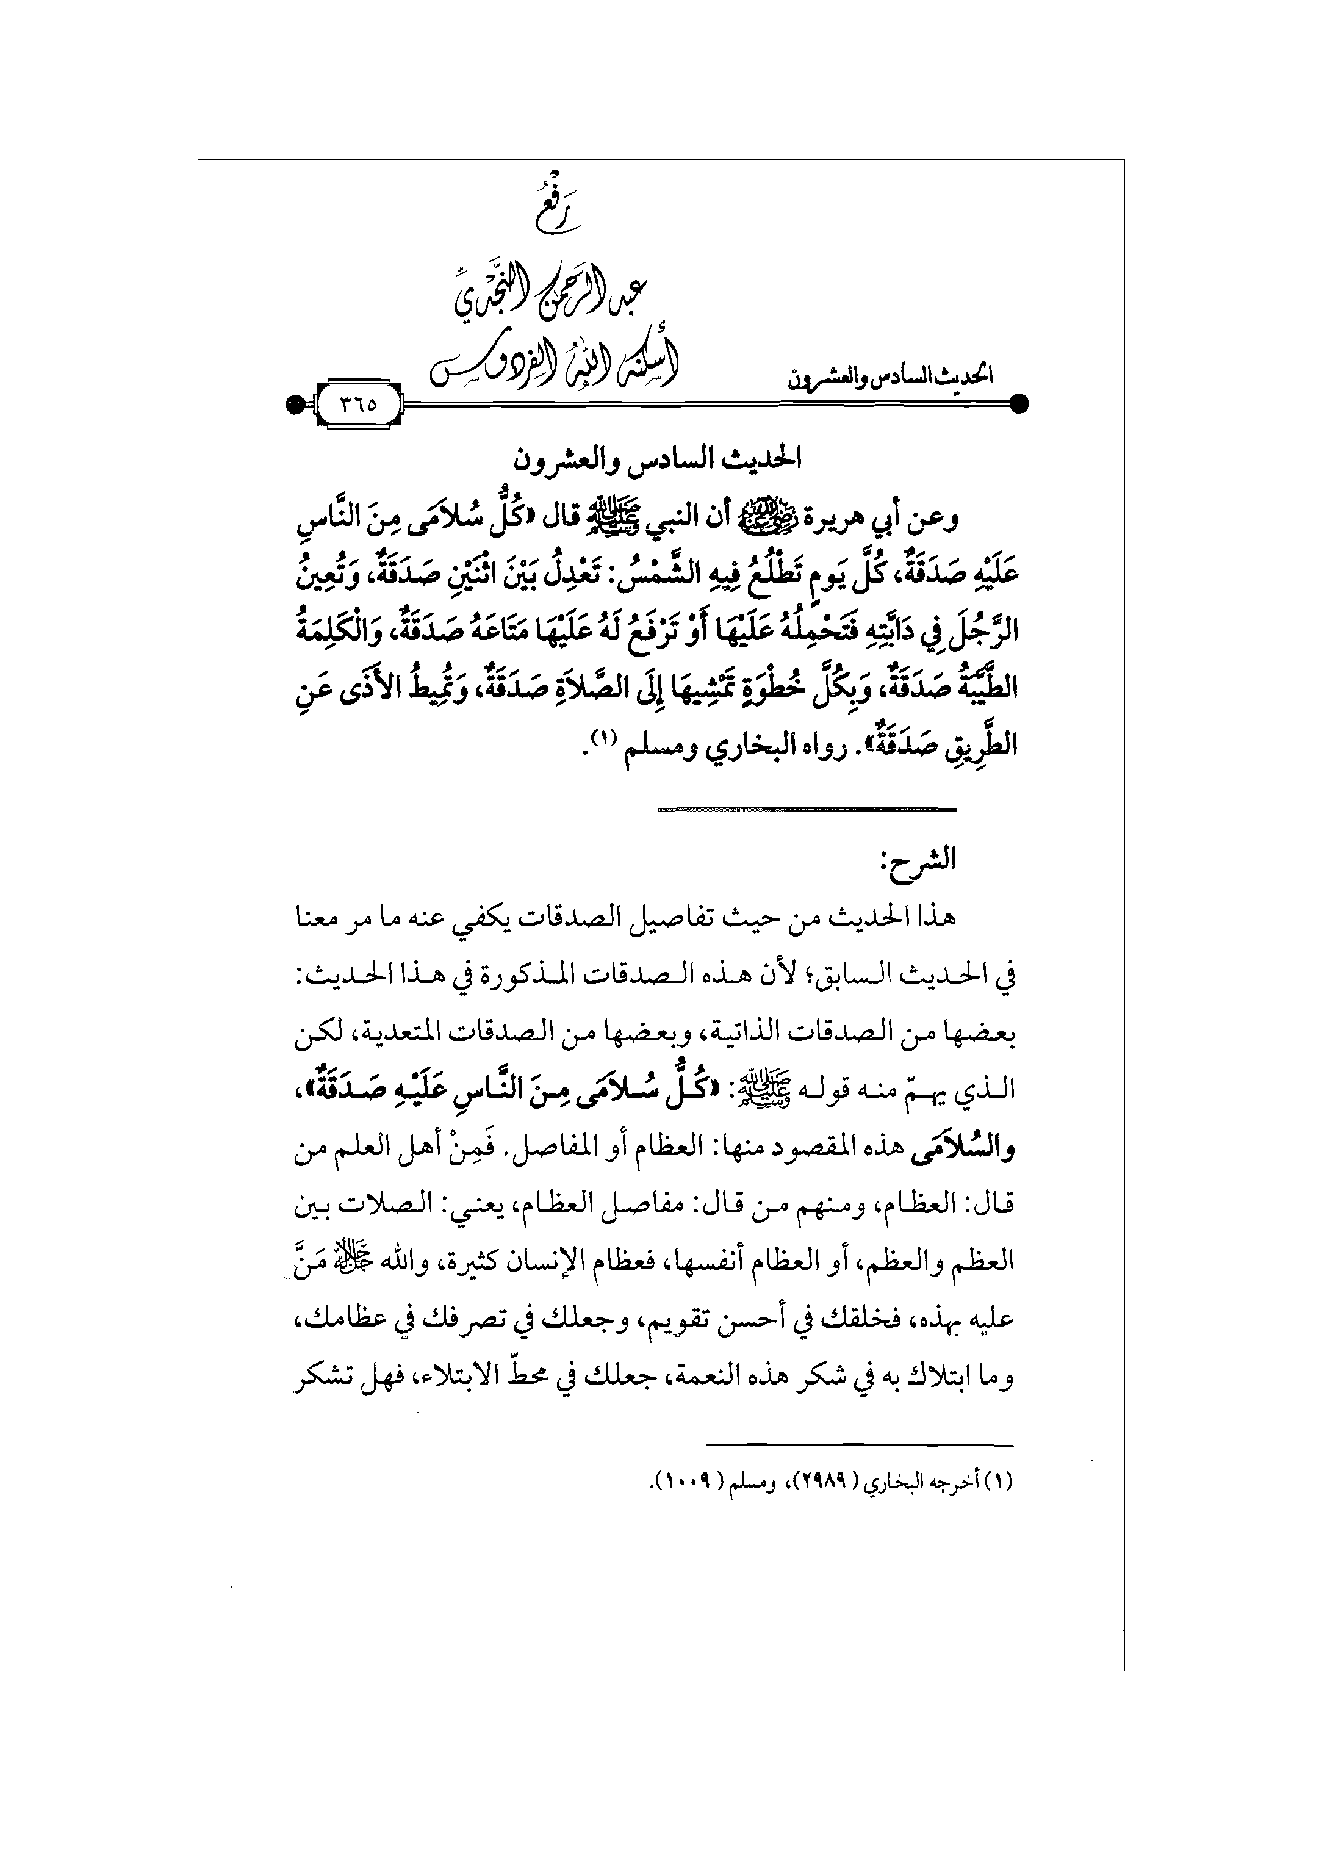 رَفْعُ
عبد الرحمن النجدي
أسكنه الله الفردوس
الحديث السادس والعشرون
٣٦٥
الحديث السادس والعشرون
وعن أبي هريرة رضي الله عنه أن النبي ﷺ قال «كُلُّ سُلاَمَى مِنَ النَّاسِ
عَلَيْهِ صَدَقَةٌ، كُلَّ يَومٍ تَطْلُعُ فِيهِ الشَّمْسُ: تَعْدِلُ بَيْنَ اثْنَيْنِ صَدَقَةٌ، وَتُعِينُ
الرَّجُلَ فِي دَابَّتِهِ فَتَحْمِلُهُ عَلَيْهَا أَوْ تَرْفَعُ لَهُ عَلَيْهَا مَتَاعَهُ صَدَقَةٌ، وَالْكَلِمَةُ
الطَّيِّبَةُ صَدَقَةٌ، وَبِكُلِّ خُطْوَةٍ تَمْشِيهَا إِلَى الصَّلاَةِ صَدَقَةٌ، وَتُمِيطُ الأَذَى عَنِ
الطَّرِيقِ صَدَقَةٌ». رواه البخاري ومسلم (١).
الشرح:
هذا الحديث من حيث تفاصيل الصدقات يكفي عنه ما مر معنا
في الحديث السابق؛ لأن هذه الصدقات المذكورة في هذا الحديث:
بعضها من الصدقات الذاتية، وبعضها من الصدقات المتعدية، لكن
الذي يهمّ منه قوله ﷺ: «كُلُّ سُلاَمَى مِنَ النَّاسِ عَلَيْهِ صَدَقَةٌ»،
والسُّلاَمَى هذه المقصود منها: العظام أو المفاصل. فَمِنْ أهل العلم من
قال: العظام، ومنهم من قال: مفاصل العظام، يعني: الصلات بين
العظم والعظم، أو العظام أنفسها، فعظام الإنسان كثيرة، والله ﷻ مَنَّ
عليه بهذه، فخلقك في أحسن تقويم، وجعلك في تصرفك في عظامك،
وما ابتلاك به في شكر هذه النعمة، جعلك في محطّ الابتلاء، فهل تشكر
(١) أخرجه البخاري (٢٩٨٩)، ومسلم (١٠٠٩).